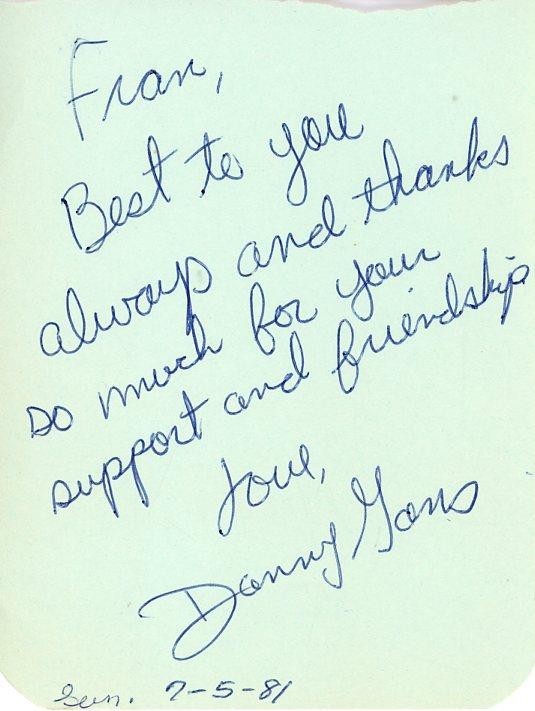 Fran,
Best to you
always and thanks
so much for your
support and friendship
Love,
Danny Gans
Sun. 7-5-81